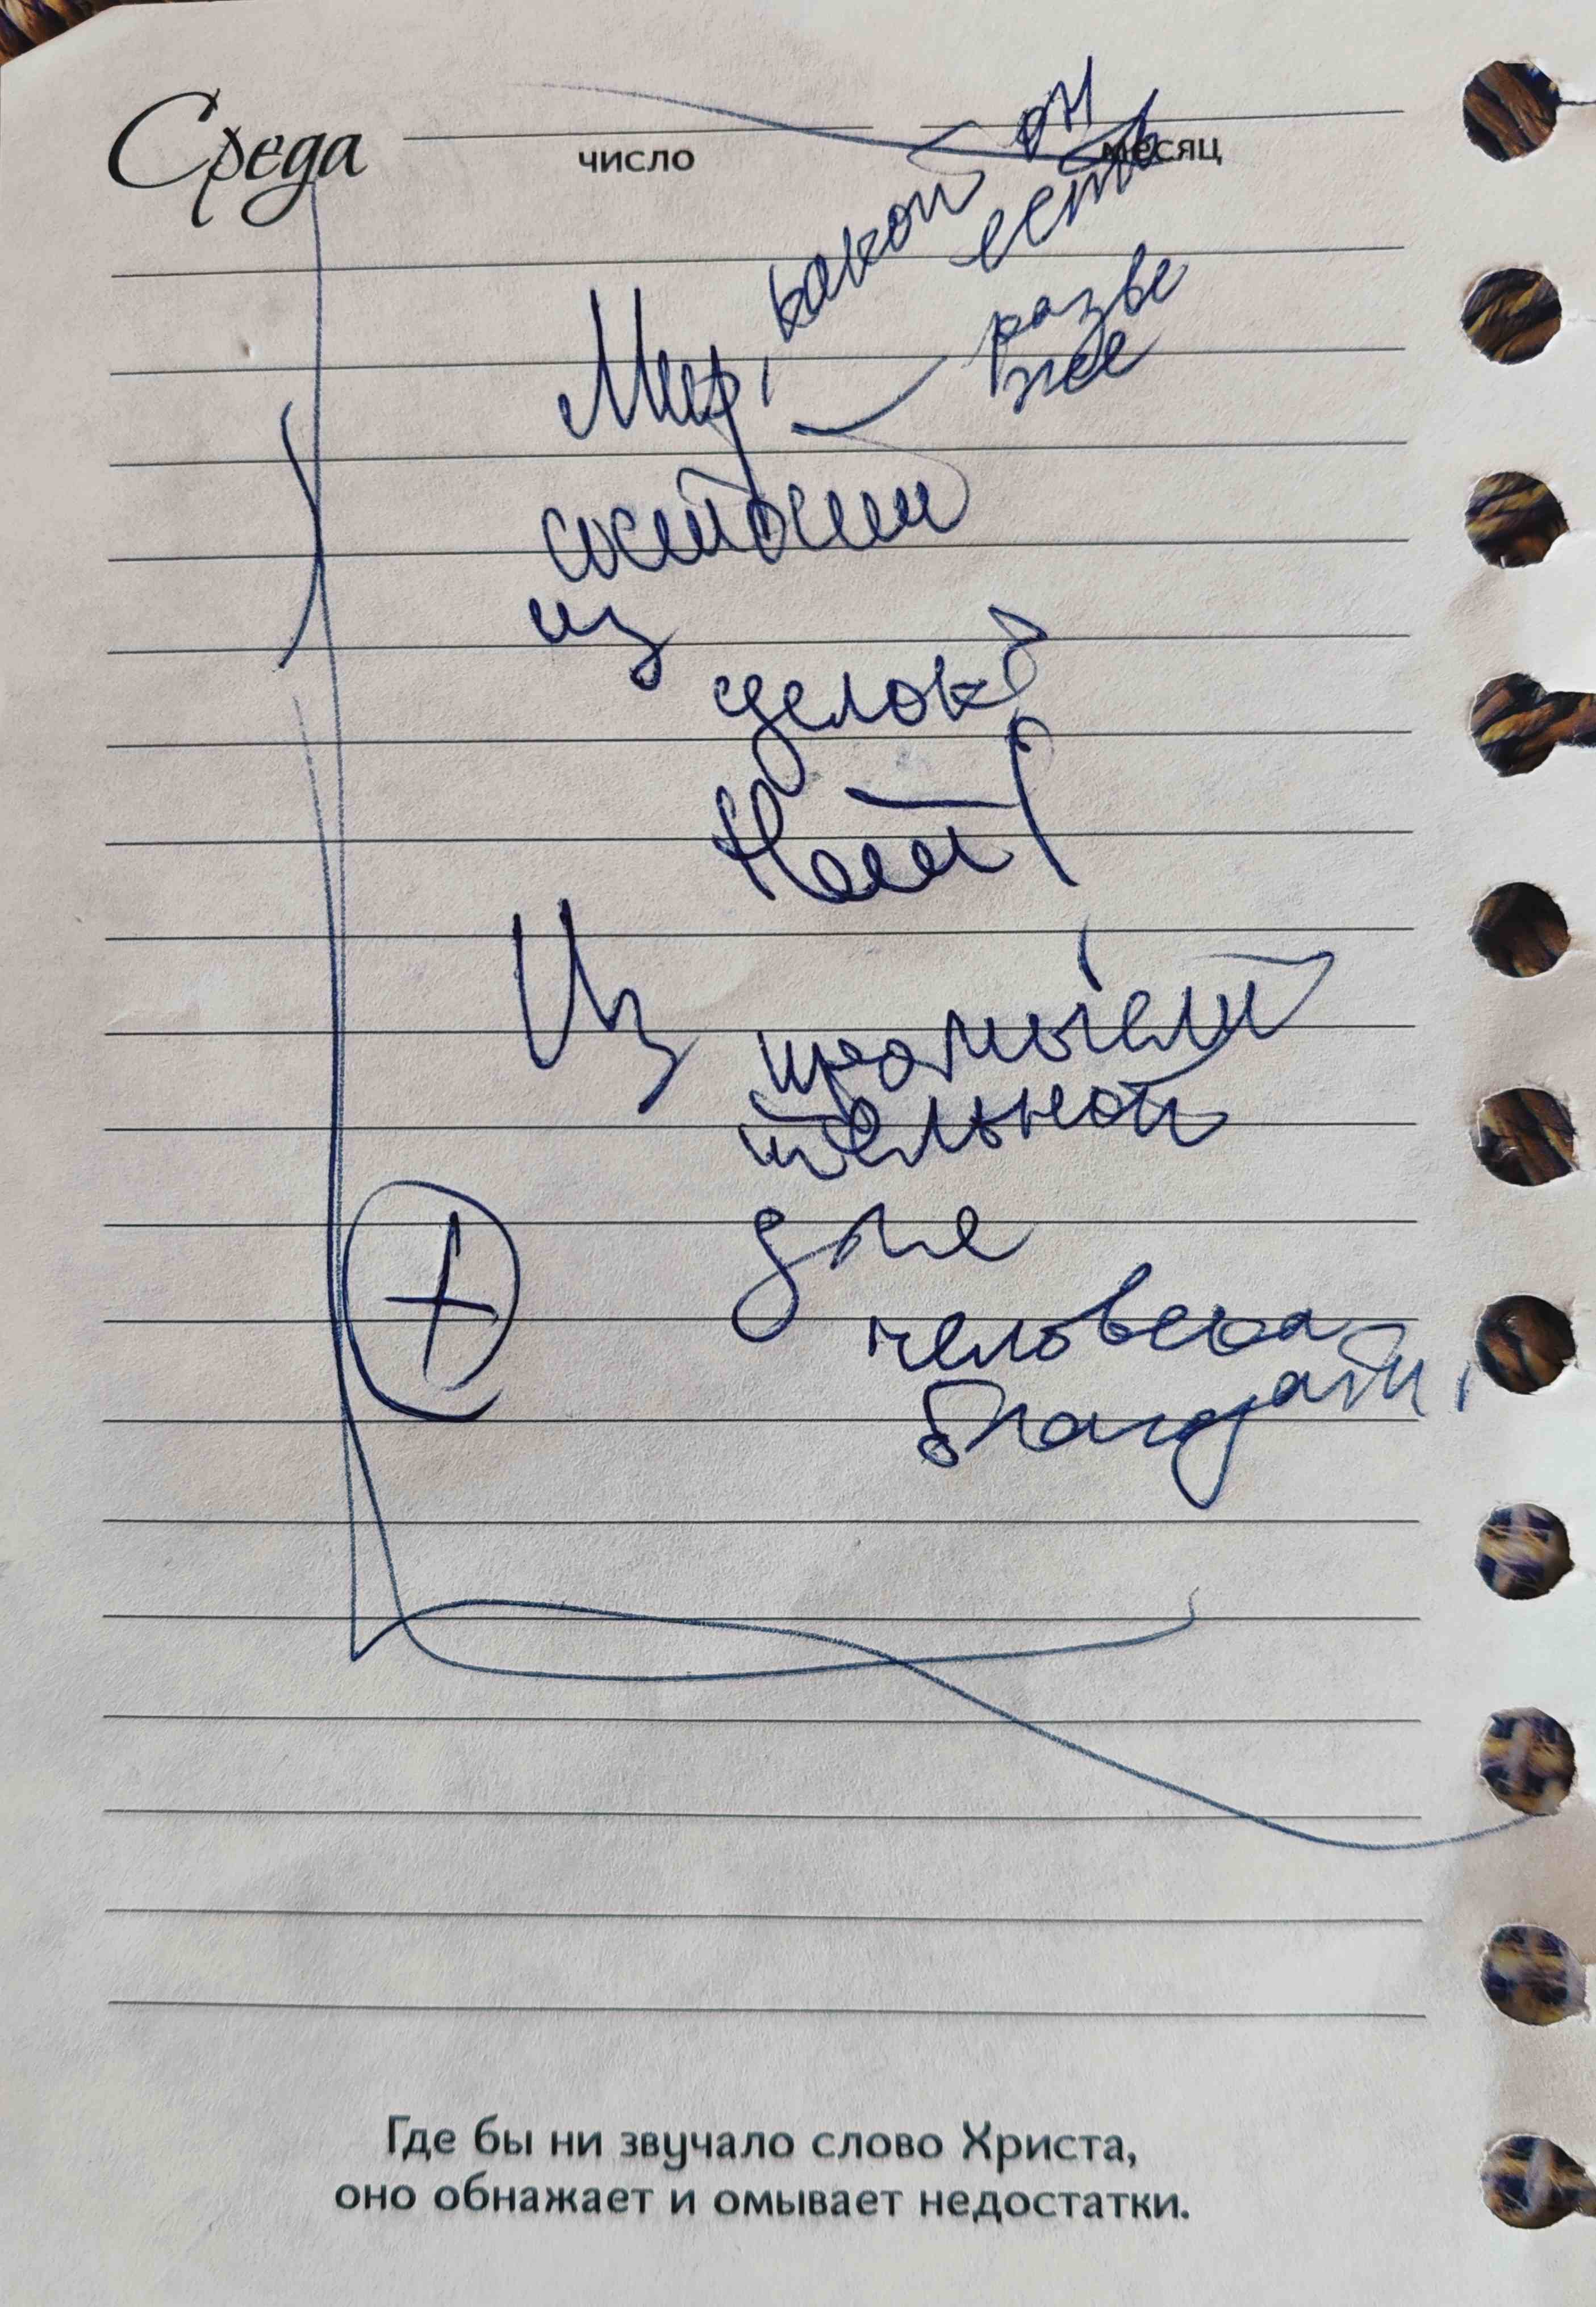 Среда
число
месяц
Мир, какой он
есть
разве
не
состоит
из
сделок?
Нет!
Из
промысли
тельной
для
человека
благодати.
Где бы ни звучало слово Христа,
оно обнажает и омывает недостатки.